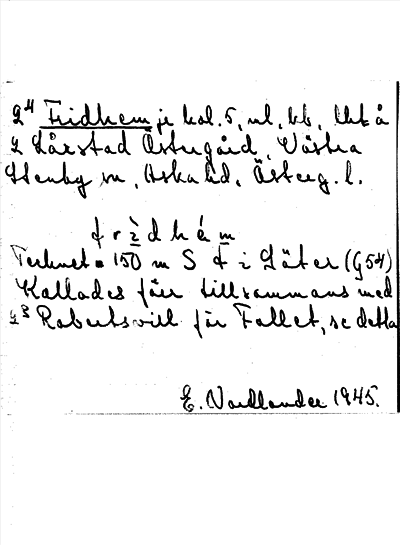 2⁴ Fridhem je kol. 5, nl, kb, lht å
2 Lårstad Östergård, Västra
Stenby sn, Aska hd, Österg. l.
frìdhém
Tecknet = 150 m S t i Säter (G54)
Kallades förr tillsammans med
2³ Robertsvill för Fallet, se detta
E. Nordlander 1945.